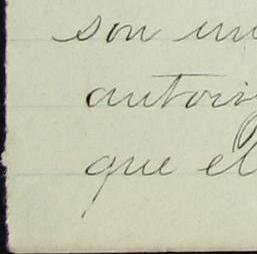 son un
autori
que el